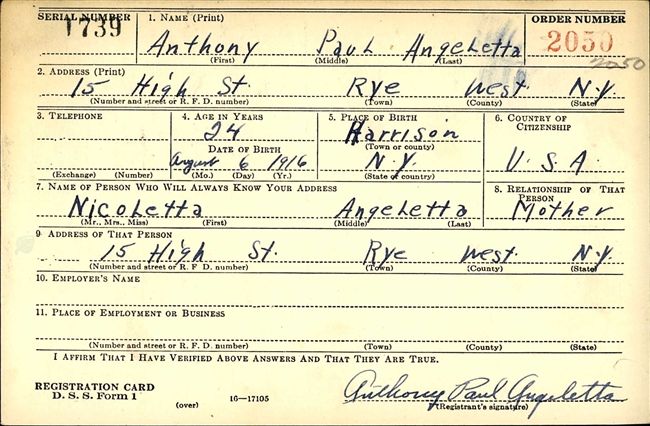 SERIAL NUMBER 1. NAME (Print) ORDER NUMBER
1739 Anthony Paul Angeletta 2050
(First) (Middle) (Last) 2050
2. ADDRESS (Print)
15 High St. Rye West. N.Y.
(Number and street or R. F. D. number) (Town) (County) (State)
3. TELEPHONE 4. AGE IN YEARS 5. PLACE OF BIRTH 6. COUNTRY OF CITIZENSHIP
24 Harrison
DATE OF BIRTH (Town or county)
August 6 1916 N.Y. U.S.A.
(Exchange) (Number) (Mo.) (Day) (Yr.) (State or country)
7. NAME OF PERSON WHO WILL ALWAYS KNOW YOUR ADDRESS 8. RELATIONSHIP OF THAT PERSON
Nicoletta Angeletta Mother
(Mr., Mrs., Miss) (First) (Middle) (Last)
9 ADDRESS OF THAT PERSON
15 High St. Rye West. N.Y.
(Number and street or R. F. D. number) (Town) (County) (State)
10. EMPLOYER'S NAME
11. PLACE OF EMPLOYMENT OR BUSINESS
(Number and street or R. F. D. number) (Town) (County) (State)
I AFFIRM THAT I HAVE VERIFIED ABOVE ANSWERS AND THAT THEY ARE TRUE.
REGISTRATION CARD Anthony Paul Angeletta
D. S. S. Form 1 (over) 16—17105 (Registrant's signature)